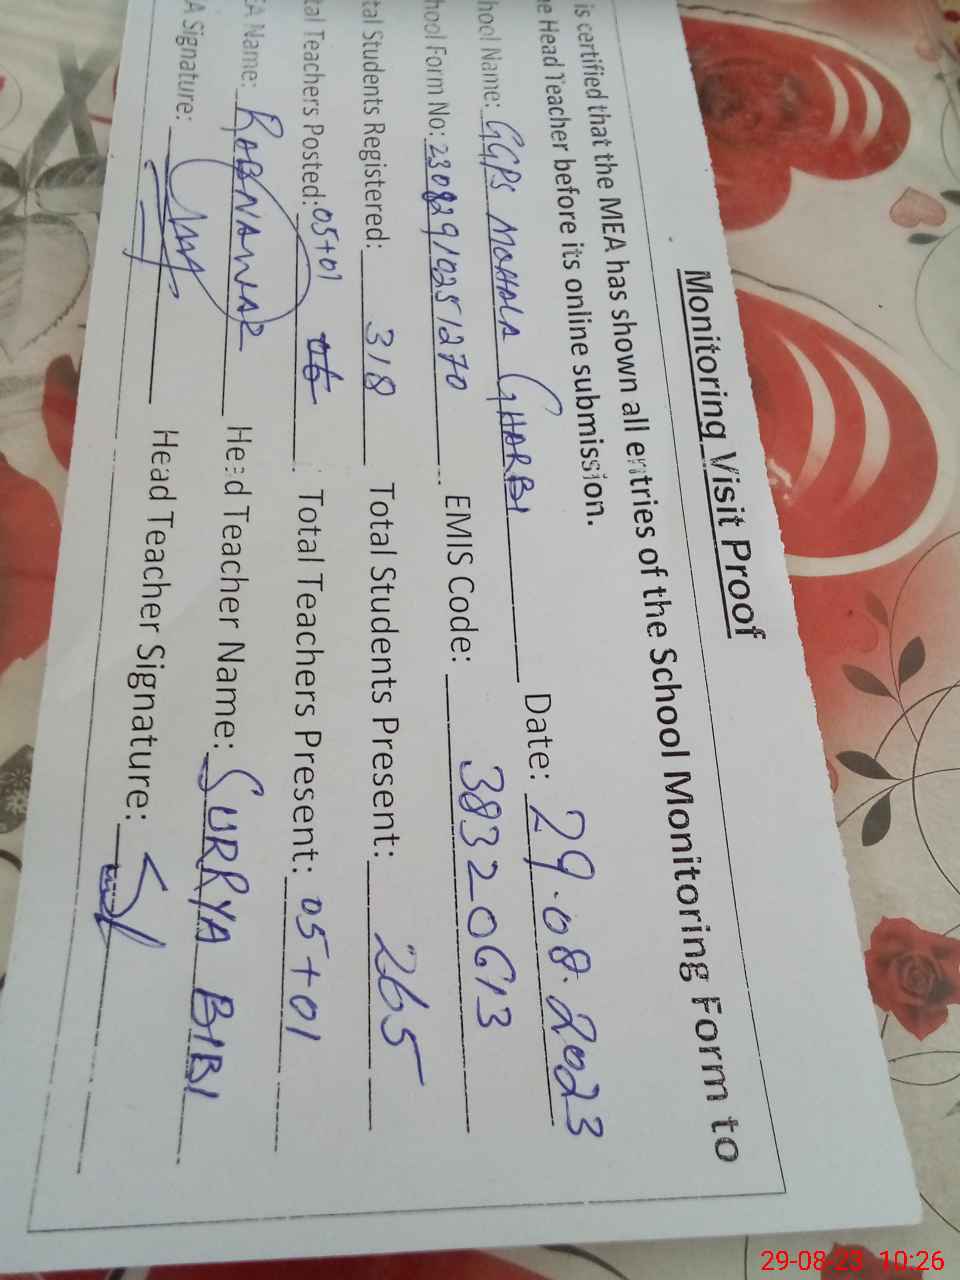 Monitoring Visit Proof
is certified that the MEA has shown all entries of the School Monitoring Form to
e Head Teacher before its online submission.
hool Name: GGPS MOHOLA GHARBI Date: 29.08.2023
hool Form No: 230829 1025 1270 EMIS Code: 38320613
tal Students Registered: 318 Total Students Present: 265
tal Teachers Posted: 05+01 Total Teachers Present: 05+01
EA Name: RABNAWAZ Head Teacher Name: SURRYA BIBI
A Signature: Head Teacher Signature:
29-08-23 10:26